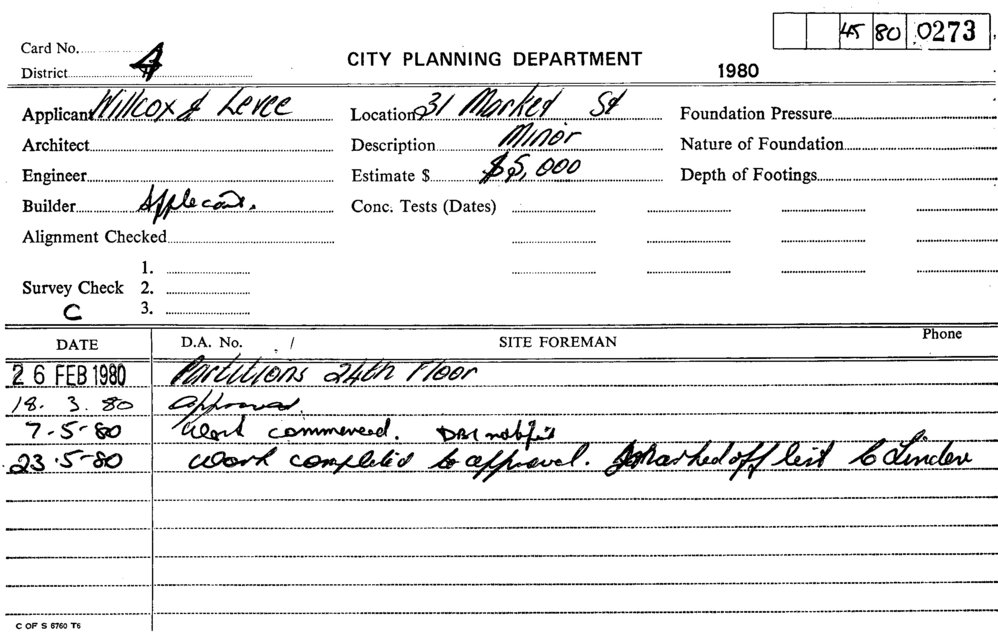 45 80 0273
Card No. 4
CITY PLANNING DEPARTMENT
District
1980
Applicant Willcox & Levee Location 31 Market St Foundation Pressure
Architect Description Minor Nature of Foundation
Engineer Estimate $ $5,000 Depth of Footings
Builder Applecant. Conc. Tests (Dates)
Alignment Checked
1.
Survey Check 2.
C 3.
DATE D.A. No. / SITE FOREMAN Phone
26 FEB 1980 Partitions 24th Floor
18. 3. 80 approved.
7-5-80 Work commenced.
23.5-80 Work completed to approval. Marked off list
C OF S 6760 T6